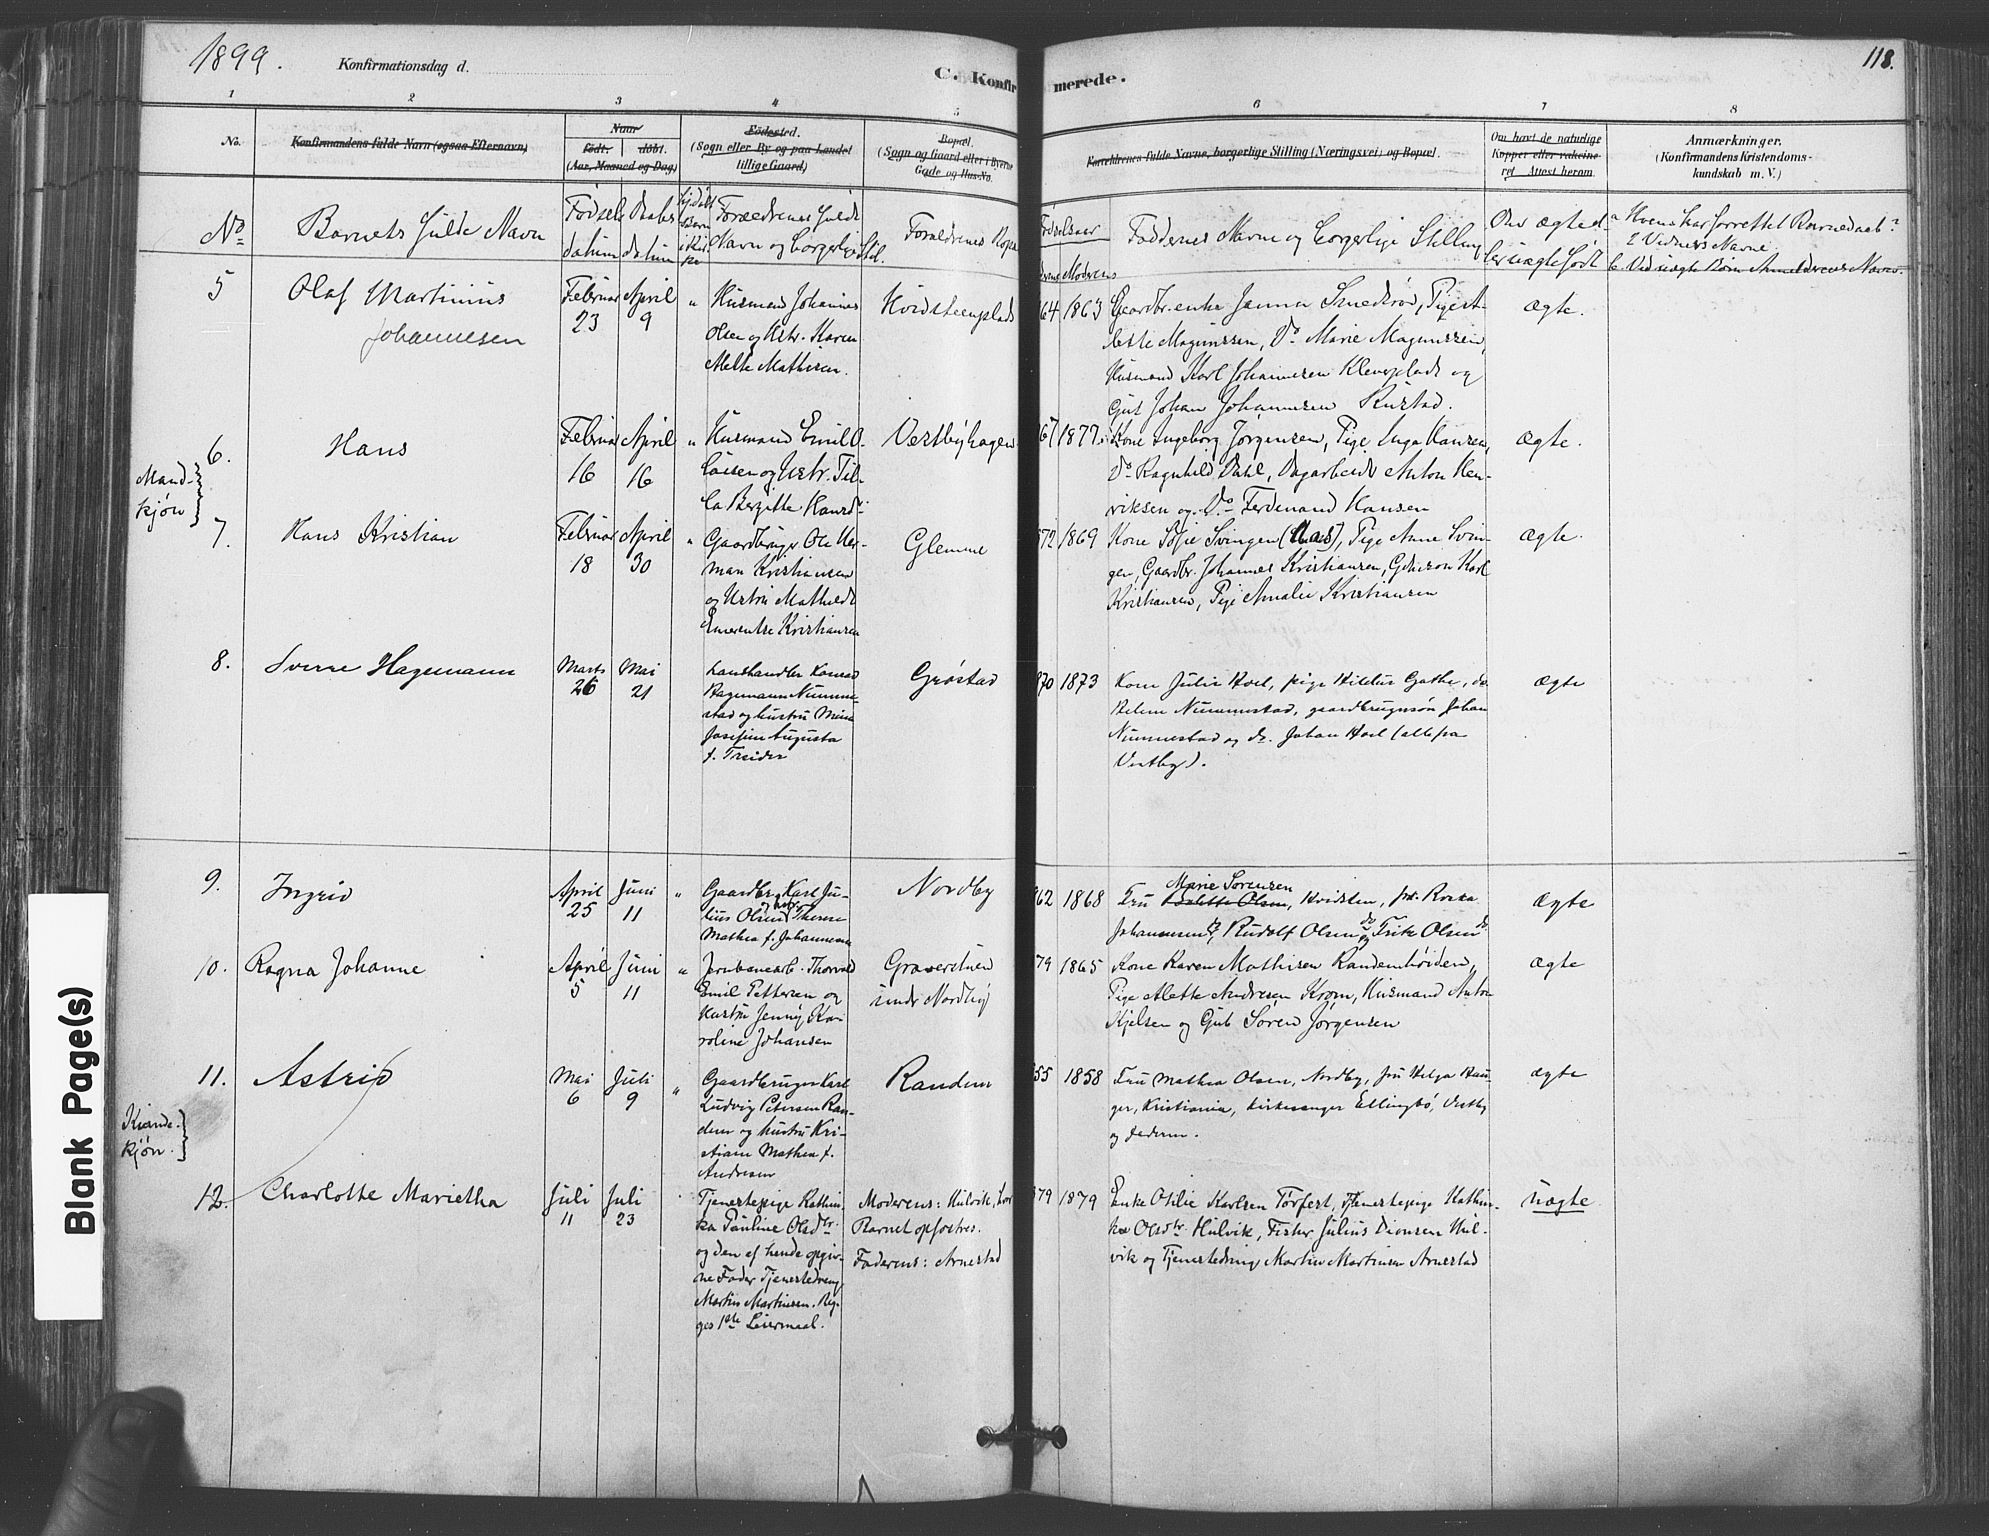 1899.
Konfirmationsdag d.
C. Konfir
merede.
118.
1
2
3
4
5
6
7
8
No.
Konfirmandens fulde Navn (ogsaa Efternavn)
Naar
født.
døbt.
(Aar, Maaned og Dag)
Fødested.
(Sogn eller By og paa Landet
tillige Gaard)
Bopæl.
(Sogn og Gaard eller i Byerne
Gade og Hus-No.
Forældrenes fulde Navne, borgerlige Stilling (Næringsvei) og Bopæl.
Om havt de naturlige
Kopper eller vakcine-
ret. Attest herom.
Anmærkninger.
(Konfirmandens Kristendoms-
kundskab m. V.)
No
Barnets fulde Navn
Fødsels
datum
Daabs
datum
Forældrenes fulde
Navn og borgerlig Stil.
Forældrenes Bopæ
Moderens
Faddernes Navne og borgerlige Stilling
Om ægte el-
ler uægte født
Hvem har forrettet Barnedaab?
2 Vidners Navne
5
Olaf Martinius
Johannesen
Februar
23
April
9
"
Husmand Johannes
Olsen og Hstr. Karen
Mette Mathisen.
Hvidsteenplads
64
1863
Gaardbr. enke Janna Smedsrød, Pige
lette Magnussen, Do Marie Magnussen,
Husmand Karl Johannesen Kleverplads og
Gut Johan Johannesen Rustad.
ægte.
6.
Hans
Februar
16
April
16
"
Husmand Emil O.
og Hstr.
Vestbyhagen
67
1877.
Kone Ingeborg Jørgensen, Pige Inga Hansen,
Do Ragnhild Dahl, Dagarbeider Anton Hen-
riksen og Do Ferdinand Hansen
ægte.
Mand-
kjøn
7.
Hans Kristian
Februar
18
April
30
"
Gaardbruger Ole Her-
man Kristiansen
og Hustru Mathilde
Emerentse Kristiansen
Glemme
72
1869
Kone Sofie Svingen (Aas), Pige Anne Svin-
gen, Gaardbr. Johannes Kristiansen, Gdmsøn Karl
Kristiansen, Pige Amalie Kristiansen
ægte.
8.
Sverre Hagemann
Marts
26
Mai
21
Landhandler Konrad
Hagemann Numme-
stad og hustru Mina
Josefine Augusta
f. Treider
Grøstad
870
1873
Kone Julie Hoel, pige Hildur Gathe, do
Helene Nummestad, gaardbrugersøn Johan
Nummestad og do. Johan Hoel (alle fra
Vestby).
ægte
9.
Ingrid
April
25
Juni
11
"
Gaardbr. Karl Ju-
lius Olsen og hus. Therese
Mathea f. Johannesen
Nordby
62
1868
Marie Sørensen
Fru Olsen, Hvidsten, frk. Rosea
Johannesen do, Rudolf Olsen do og Frits Olsen do
ægte
10.
Ragna Johanne
April
5
Juni
11
"
Jernbanearb. Thorvald
Emil Pettersen og
Hustru Jenny Ka-
roline Johansen
Graverstuen
under Nordby
79
1865
Kone Karen Mathisen Randemhøiden,
Pige Alette Andresen Krom, Husmand Anton
Kjelsen og Gut Søren Jørgensen
ægte
11.
Astrid
Mai
6
Juli
9
"
Gaardbruger Karl
Ludvig Petersen Ran-
dem og hustru Kri-
stiane Mathea f.
Andresen
Randem
55
1858
Fru Mathea Olsen, Nordby, fru Helga Hau-
ger, Kristiania, kirkesanger Ellingbø, Vestby
og faderen.
ægte
Kvinde-
kjøn.
12.
Charlotte Marietha
Juli
11
Juli
23
Tjenestepige Kathin-
ka Pauline Olsdtr.
og den af hende opgiv-
ne Fader Tjenestedreng
Martin Martinsen. Beg-
ges 1ste Leiermaal.
Moderens: Hulvik, hvor
Barnet opfostres.
Faderens: Arnestad
879
1879
Enke Otilie Karlsen Torfest, Tjenestepige Kathin-
ka Olsdtr. Hulvik, Fisker Julius Dionsen Hul-
vik og Tjenestedreng Martin Martinsen Arnestad
uægte
Blank Page(s)